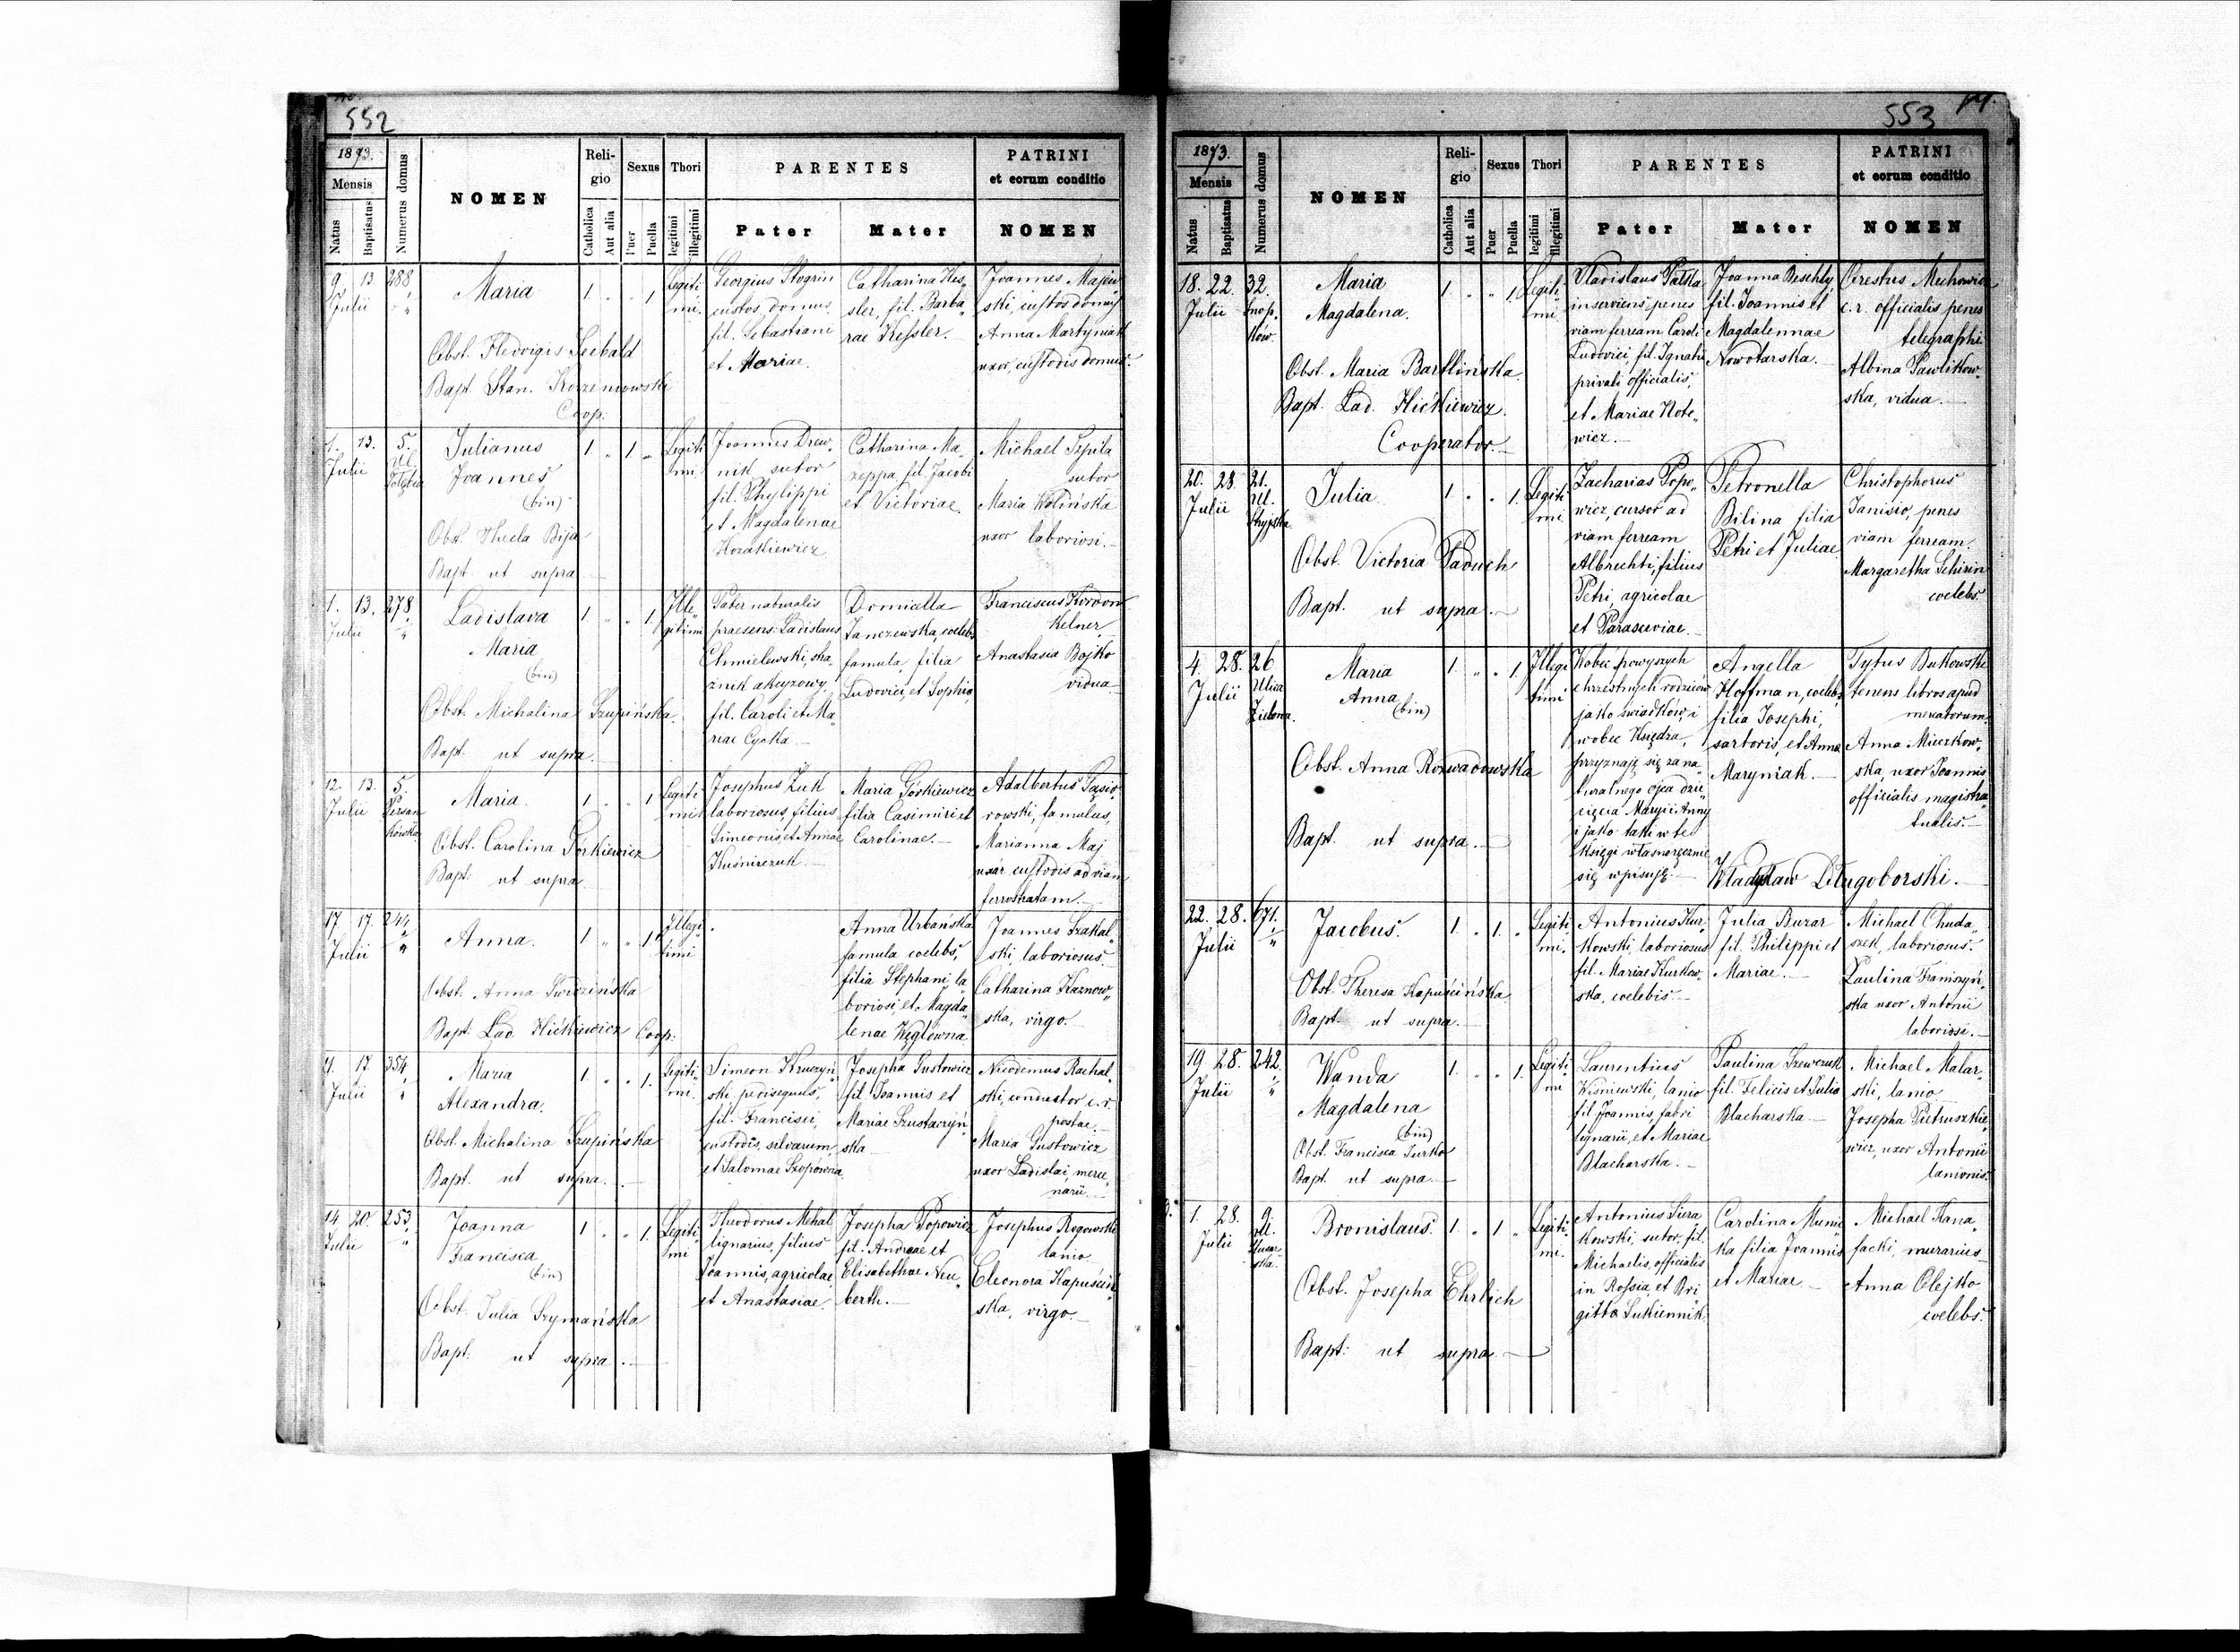 552
1873.
Mensis
Natus
Baptisatus
Numerus domus
NOMEN
Religio
Catholica
Aut alia
Sexus
Puer
Puella
Thori
legitimi
illegitimi
PARENTES
Pater
Mater
PATRINI
et eorum conditio
NOMEN
9. 13 288
Julii "
Maria
1 " " 1
Legiti
mi.
Obst. Hedvigis Seebald
Bapt. Stan. Korzeniowski
Coop.
Georgius Stogrin
custos domus,
fil. Sebastiani
et Mariae.
Catharina Kes„
sler, fil. Barba„
rae Kessler.
Joannes Majew
ski, custos domus
Anna Martyniak
uxor custodis domus.
1. 13. 5.
Julii
Julianus
Joannes
(bin)
1 " 1 "
Legiti
mi
Obst. Thecla Bija
Bapt ut supra
Joannes Drew„
nik sutor
fil. Phylippi
et Magdalenae
Korakiewicz
Catharina Ma„
zeppa fil. Jacobi
et Victoriae.
Michael Szpila
sutor
Maria Wolińska
uxor laboriosi.
1. 13. 278.
Julii "
Ladislava
Maria
(bin)
1 " " 1
Ille„
gitimi
Obst. Michalina Szupińska.
Bapt. ut supra.
Pater naturalis
praesens: Ladislaus
Chmielewski, stra„
żnik akcyzowy,
fil. Caroli et Ma„
riae Cycka
Domicella
Janczewska, coelebs
famula, filia
Ludovici, et Sophia,
Franciscus Kordon
kelner
Anastasia Bojko
vidua
12. 13. 5.
Julii Persen
kówka
Maria.
1 " " 1
Legiti
mi
Obst. Carolina Gorkiewicz
Bapt. ut supra
Josephus Żuk
laboriosus, filius
Simeonis, et Annae
Kuśnirczuk.
Maria Górkiewicz
filia Casimiri et
Carolinae.
Adalbertus Gąsio„
rowski, famulus,
Marianna Maj
uxor custodis ad viam
ferrostratam.
17 17. 244
Julii "
Anna.
1 " " 1
Illegi
timi
Obst. Anna Świrzińska
Bapt. Lad. Hićkiewicz Coop:
Anna Urbańska
famula coelebs,
filia Stephani, la
boriosi, et Magda„
lenae Węglówna
Joannes Szakal„
ski, laboriosus.
Catharina Kaznow„
ska, virgo.
4. 17. 354
Julii "
Maria
Alexandra.
1 " " 1.
Legiti
mi.
Obst. Michalina Szupińska
Bapt. ut supra.
Simeon Kruczyń
ski pedisequus,
fil. Francisci,
custodis silvarum,
et Salomae Szopówna
Josepha Gustowicz
fil. Joannis et
Mariae Szustaczyń„
ska
Nicodemus Rachal„
ski, conductor c. r.
postae.
Maria Gustowicz
uxor Ladislai, merce„
narii.
14. 20. 253.
Julii "
Joanna
Francisca
(bin)
1 " " 1.
Legiti
mi
Obst. Julia Szymańska
Bapt. ut supra.
Theodorus Mehal
lignarius, filius
Joannis, agricolae,
et Anastasiae.
Josepha Popowicz
fil. Andreae et
Elisabethae Neu„
berth.
Josephus Rogowski
lanio
Eleonora Kapuściń
ska, virgo.
553
1873.
Mensis
Natus
Baptisatus
Numerus domus
NOMEN
Religio
Catholica
Aut alia
Sexus
Puer
Puella
Thori
legitimi
illegitimi
PARENTES
Pater
Mater
PATRINI
et eorum conditio
NOMEN
18. 22. 32.
Julii Snop„
ków.
Maria
Magdalena.
1 " " 1.
Legiti
mi
Obst. Maria Bartlińska.
Bapt. Lad. Hićkiewicz.
Cooperator.
Vladislaus Patka
inserviens penes
viam ferream Caroli
Ludovici, fil. Ignatii
privati officialis,
et Mariae Note„
wicz.
Joanna Beschly,
fil. Joannis et
Magdalennae
Nowotarska.
Orestus Mechowicz
c. r. officialis penes
telegraphi
Albina Pawlikow„
ska, vidua.
20. 28. 21.
Julii ul.
Stryjska
Julia.
1 " " 1.
Legiti
mi
Obst. Victoria Paduch
Bapt. ut supra.
Zacharias Popo„
wicz, cursor ad
viam ferream
Albrechti, filius
Petri, agricolae
et Parasceviae.
Petronella
Bilina filia
Petri et Juliae.
Christophorus
Janisio, penes
viam ferream.
Margaretha Schirin
coelebs.
4. 28. 26
Julii Ulica
Zielona.
Maria
Anna
(bin)
1. " " 1.
Illegi
timi
Obst. Anna Rozwadowska
Bapt. ut supra.
Wobec powyższych
chrzestnych rodziców
jako świadków, i
wobec Księdza,
przyznaję się za na„
turalnego ojca dzie„
cięcia Maryi i Anny
i jako taki w te
księgi własnoręcznie
się wpisuję.
Władysław Długoborski.
Angella
Hoffman, coelebs,
filia Josephi,
sartoris, et Anna
Maryniak.
Tytus Bukowski
tenens libros apud
mercatorum.
Anna Mieczkow„
ska, uxor Joannis
officialis magistra„
tualis.
22. 28. 671.
Julii "
Jacobus.
1. " 1. "
Legiti
mi.
Obst. Theresa Kapuścińska
Bapt. ut supra.
Antonius Kur„
kowski, laboriosus
fil. Mariae Kurkow„
ska, coelebis.
Julia Buzar
fil. Philippi et
Mariae.
Michael Chuda„
szek, laboriosus.
Paulina Framszyń„
ska uxor Antonii
laboriosi.
19. 28. 242.
Julii "
Wanda
Magdalena
(bin)
1. " " 1.
Legiti
mi
Obst. Francisca Turko
Bapt. ut supra.
Laurentius
Wiśniewski, lanio
fil. Joannis, fabri
lignarii, et Mariae
Blacharska.
Paulina Szewczuk
fil. Felicis et Julia
Blacharska.
Michael Malar„
ski, lanio
Josepha Pietruszkie„
wicz, uxor Antonii
lanionis.
1. 28. 9.
Julii ul.
Husar
ska.
Bronislaus.
1. " 1 "
Legiti
mi.
Obst. Josepha Ehrlich
Bapt: ut supra.
Antonius Siera„
kowski, sutor, fil.
Michaelis, officialis
in Rossia, et Bri
gitta Sukiennik.
Carolina Munic
ka filia Joannis
et Mariae
Michael Kana„
facki, murarius
Anna Olejko
coelebs.